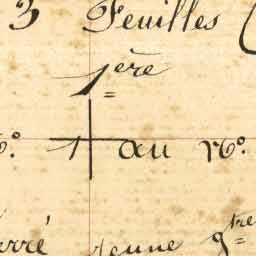 3 Feuilles
1ère
N° 1 au N°
erré jeune gtre